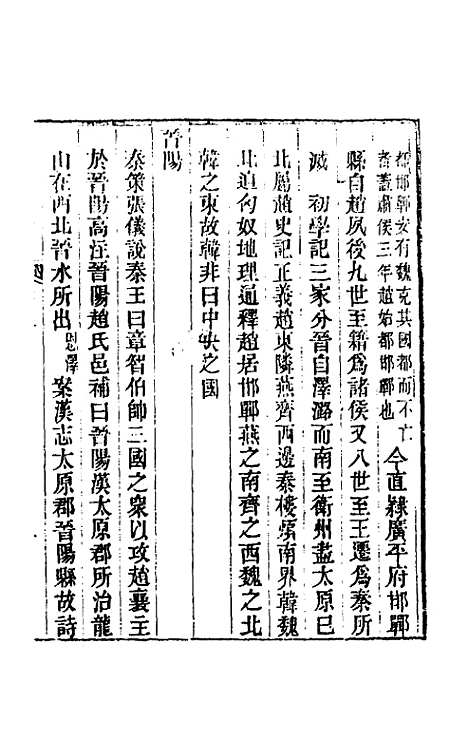 都邯鄲安有魏克其國都而不亡
者蓋肅侯三年趙始都邯鄲也
今直隸廣平府邯鄲
縣自趙夙後九世至籍爲諸侯又八世至王遷爲秦所
滅　初學記三家分晉自澤潞而南至衛州盡太原已
北屬趙史記正義趙東隣燕齊西邊秦樓煩南界韓魏
北迫匈奴地理通釋趙居邯鄲燕之南齊之西魏之北
韓之東故韓非曰中央之國
晉陽
秦策張儀說秦王曰章智伯帥三國之衆以攻趙襄主
於晉陽高注晉陽趙氏邑補曰晉陽漢太原郡所治龍
山在西北晉水所出　案漢志太原郡晉陽縣故詩